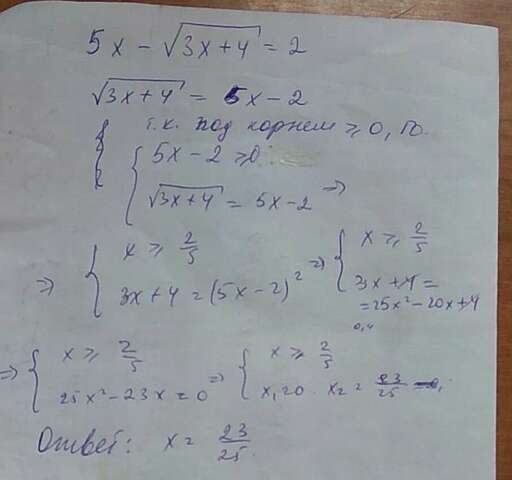 5x - √(3x+4) = 2
√(3x+4) = 5x - 2
т.к. под корнем ≥ 0, то.
{ 5x - 2 ≥ 0
√(3x+4) = 5x - 2 ⇒
⇒ { x ≥ 2/5
3x + 4 = (5x - 2)² ⇒
{ x ≥ 2/5
3x + 4 =
= 25x² - 20x + 4
0,4
⇒ { x ≥ 2/5
25x² - 23x = 0 ⇒
{ x ≥ 2/5
x₁ = 0 x₂ = 23/25
Ответ: x = 23/25.